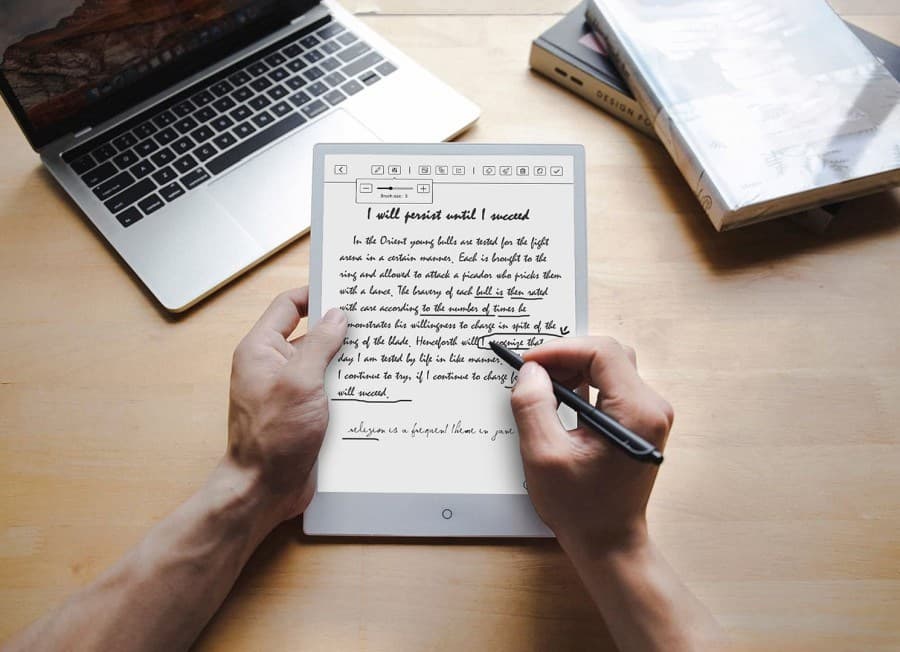 Brush size : 3
I will persist until I succeed
In the Orient young bulls are tested for the fight
arena in a certain manner. Each is brought to the
ring and allowed to attack a picador who pricks them
with a lance. The bravery of each bull is then rated
with care according to the number of times he
monstrates his willingness to charge in spite of the
ting of the blade. Henceforth will I recognize that
day I am tested by life in like manner.
I continue to try, if I continue to charge
will succeed.
religion is a frequent theme in jane
DESIGN FO